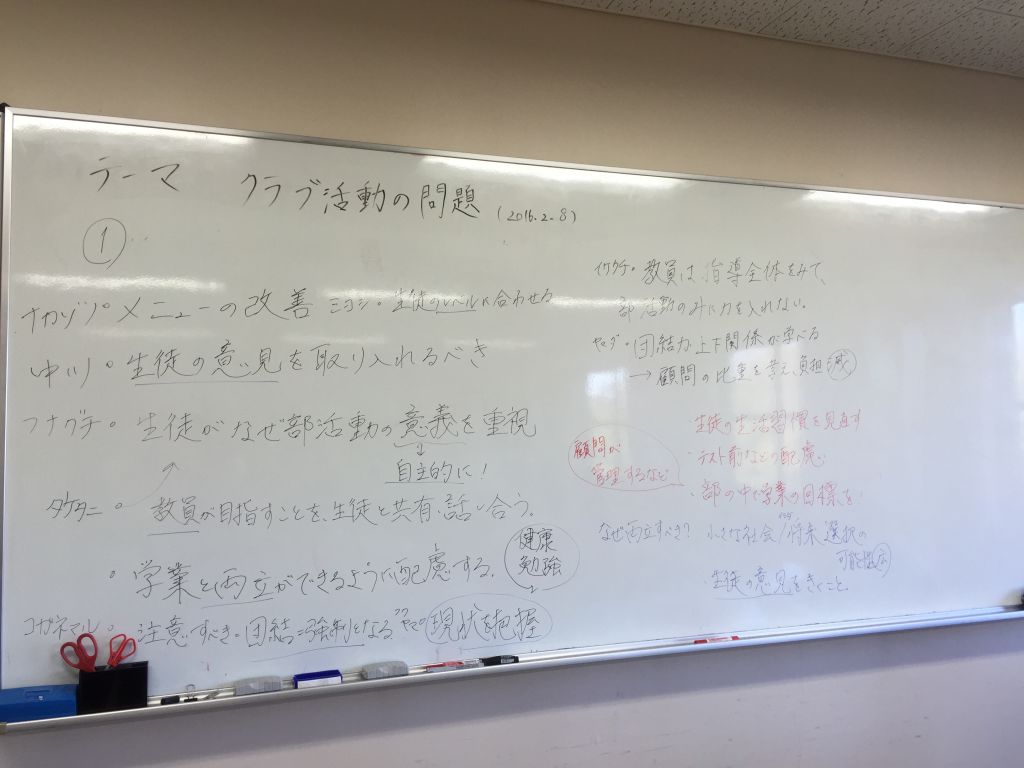 テーマ クラブ活動の問題 (2016.2.8)
①
ナカゾノ・メニューの改善 ミヨシ・生徒のレベルに合わせる
中川・生徒の意見を取り入れるべき
フナグチ・生徒がなぜ部活動の意義を重視
自主的に!
タケタニ・教員が目指すことを、生徒と共有、話し合う。
・学業と両立ができるように配慮する。
健康
勉強
コガネマル・注意すべき・団結=強制となる 現状を把握
教員は、指導全体をみて、
部活動のみに力を入れない。
団結力 上下関係が学べる
→顧問の比重を考え、負担減
・生徒の生活習慣を見直す
・テスト前などの配慮
・部の中で学業の目標を
顧問が
管理するなど
なぜ両立すべき? 小さな社会/将来選択の
可能性
・生徒の意見をきくこと。